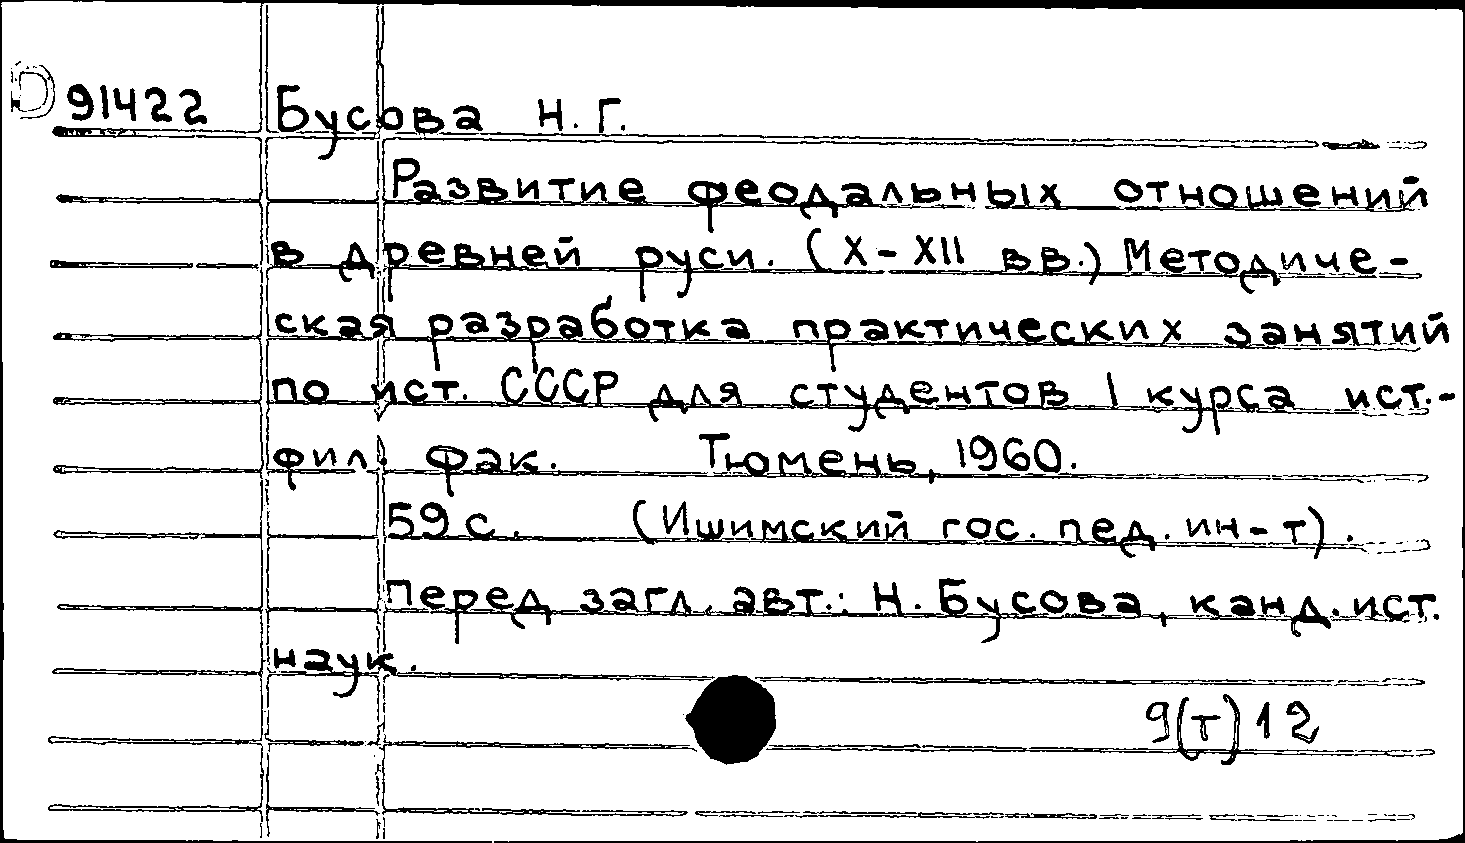 D 91422 Бусова Н.Г.
Развитие феодальных отношений
в древней руси. (X-XII вв.) Методиче-
ская разработка практических занятий
по ист. СССР для студентов I курса ист.-
фил. фак. Тюмень, 1960.
59 с. (Ишимский гос. пед. ин-т).
Перед загл. авт.: Н. Бусова, канд. ист.
наук.
9(т)12